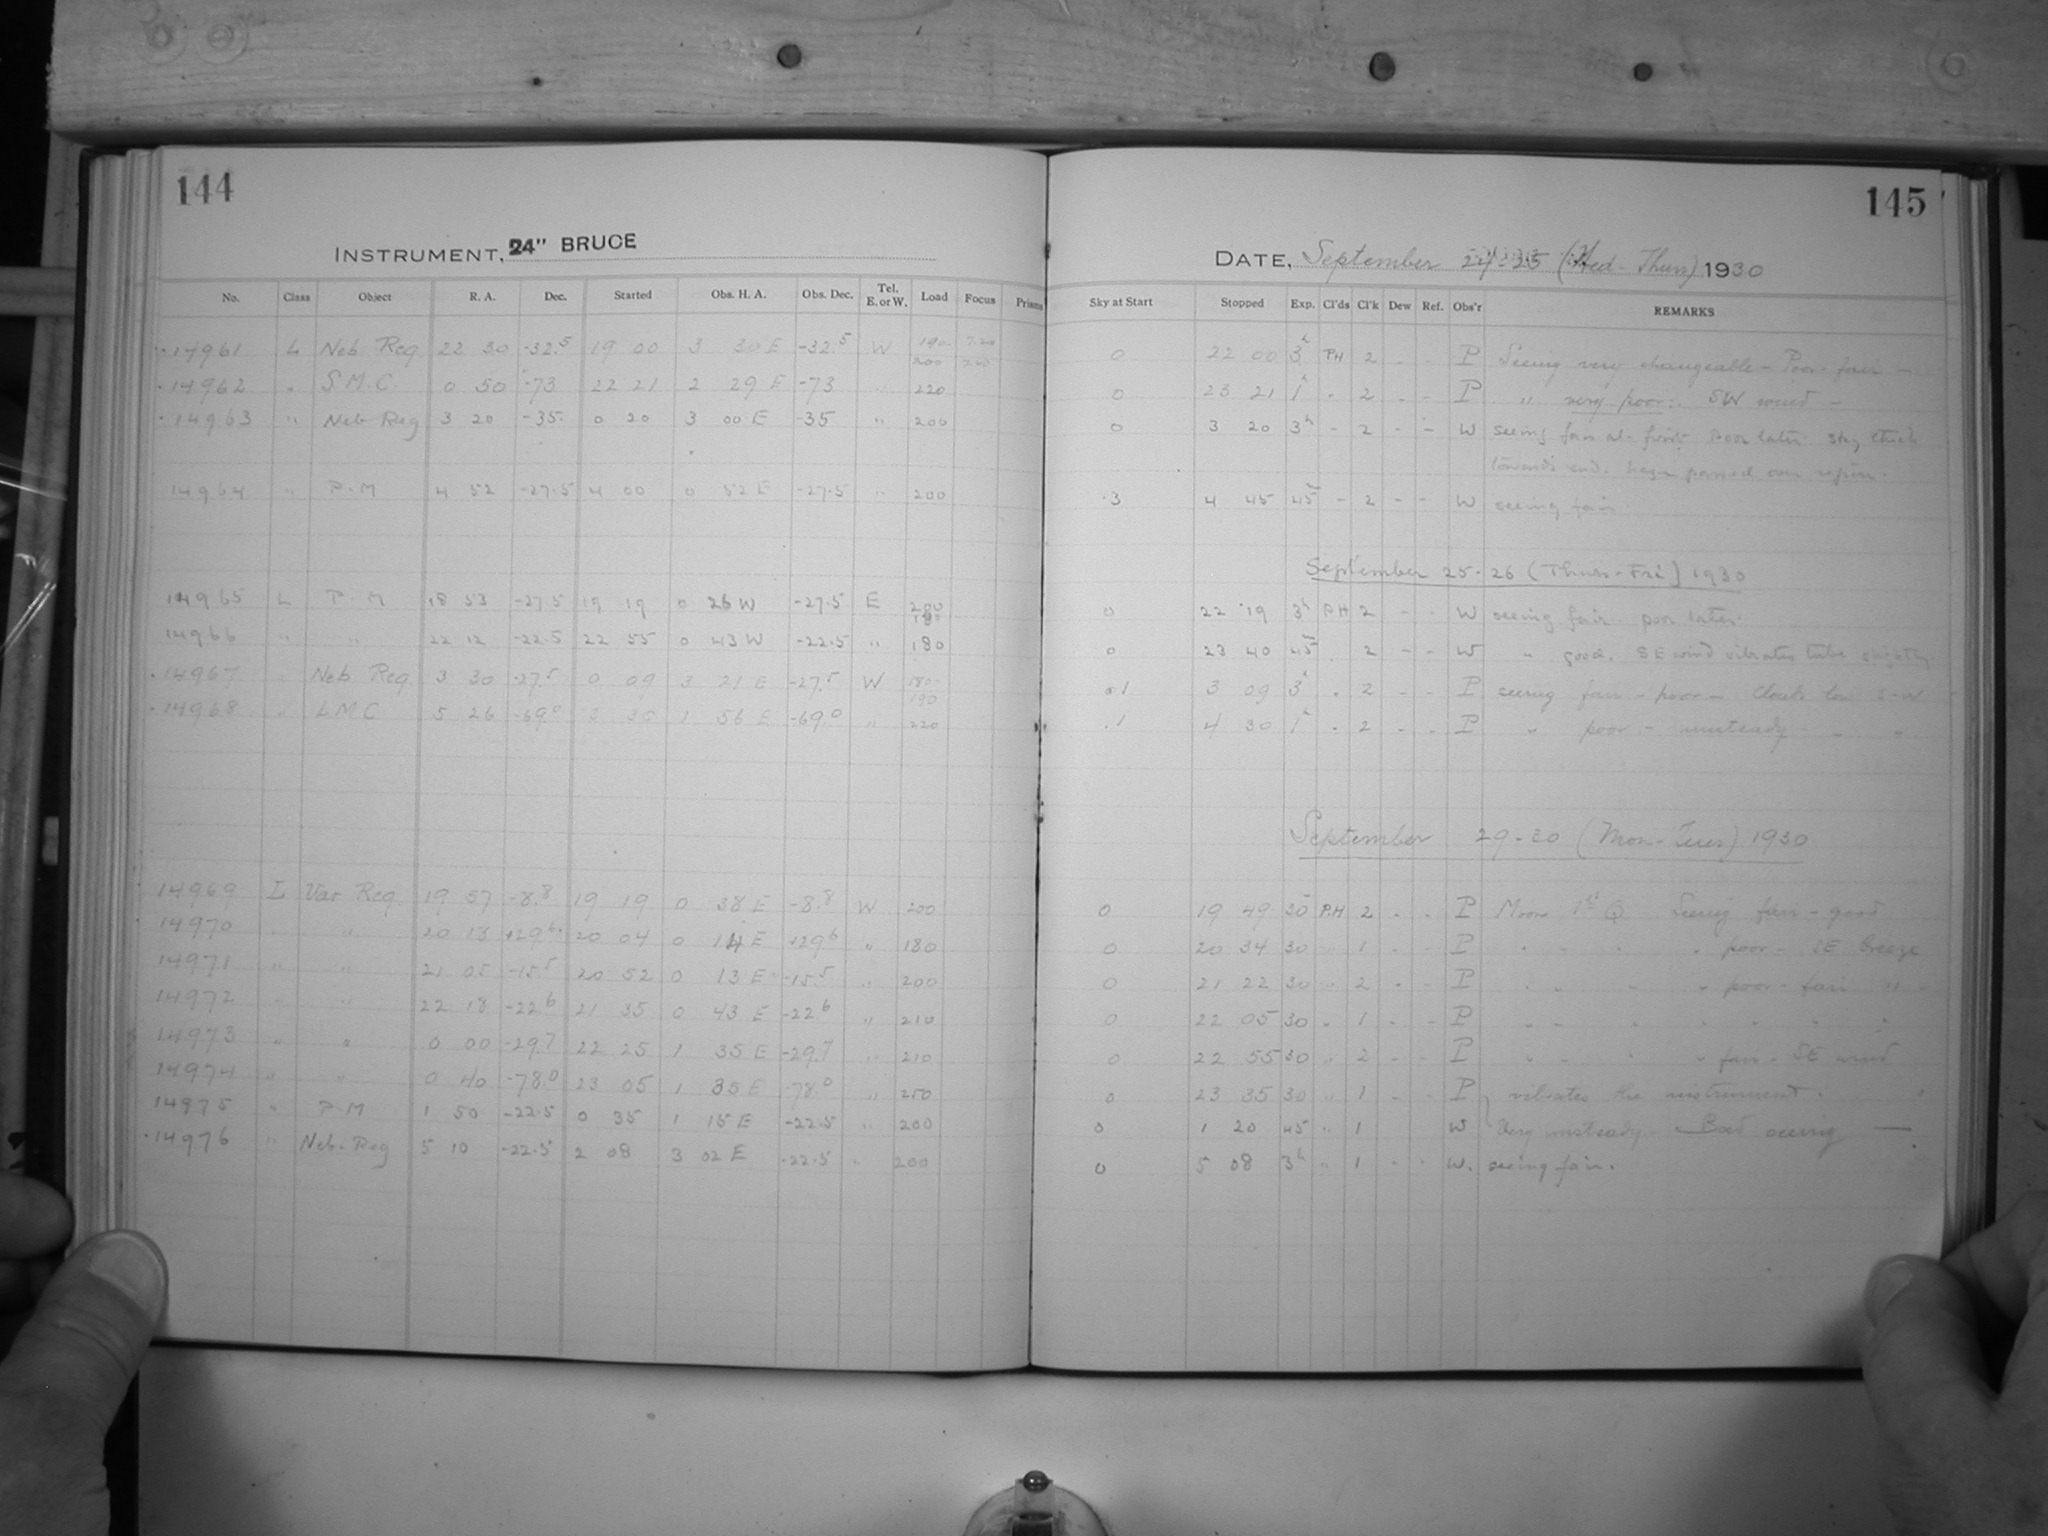 144
INSTRUMENT, 24" BRUCE
No. Class Object R. A. Dec. Started Obs. H. A. Obs. Dec. Tel. E. or W. Load Focus Prisms
14961 L Neb Reg. 22 30 -32.5 19 00 3 30 E -32.5 W 190 7.20
200
14962 " S.M.C. 0 50 -73 22 21 2 29 E -73 " 220
14963 " Neb Reg 3 20 -35. 0 20 3 00 E -35 " 200
14964 " P.M 4 52 -27.5 4 00 0 52 E -27.5 " 200
14965 L P.M 18 53 -27.5 19 19 0 26 W -27.5 E 200
180
14966 " " 22 12 -22.5 22 55 0 43 W -22.5 " 180
14967 " Neb Reg. 3 30 -27.5 0 09 3 21 E -27.5 W 180-
190
14968 " L M C 5 26 -69.0 3 30 1 56 E -69.0 " 220
14969 L Var Reg. 19 57 -8.8 19 19 0 38 E -8.8 W 200
14970 " 20 18 +29.6 20 04 0 14 E +29.6 " 180
14971 " " 21 05 -15.5 20 52 0 13 E -15.5 " 200
14972 " " 22 18 -22.6 21 35 0 43 E -22.6 " 210
14973 " " 0 00 -29.7 22 25 1 35 E -29.7 " 210
14974 " " 0 40 -78.0 23 05 1 35 E -78.0 " 250
14975 " P.M 1 50 -22.5 0 35 1 15 E -22.5 " 200
14976 " Neb. Reg 5 10 -22.5 2 08 3 02 E -22.5 " 200
145
DATE, September 24-25 (Wed-Thurs) 1930
Sky at Start Stopped Exp. Cl'ds Cl'k Dew Ref. Obs'r REMARKS
0 22 00 3h PH 2 - - P Seeing very changeable - Poor - fair -
0 23 21 1h " 2 - - P " very poor. SW wind -
0 3 20 3h - 2 - - W seeing fair at first poor later. sky thick
towards end. haze passed over region.
.3 4 45 45m - 2 - - W seeing fair
September 25-26 (Thurs-Fri) 1930
0 22 19 3h PH 2 - - W seeing fair poor later.
0 23 40 45m . 2 - - W " good. SE wind vibrates tube slightly
.1 3 09 3h " 2 - - P seeing fair - poor - Clouds low S-W
.1 4 30 1h " 2 - - P " poor - unsteady - " "
September 29-30 (Mon-Tues) 1930
0 19 49 30 P.H 2 - - P Moon 1st Q Seeing fair - good
0 20 34 30 " 1 - - P " " " " poor - SE breeze
0 21 22 30 " 2 - - P " " " " poor - fair " "
0 22 05 30 " 1 - - P " " " " " "
0 22 55 30 " 2 - - P " " " " fair - SE wind
0 23 35 30 " 1 - - P vibrates the instrument.
0 1 20 45 " 1 W Very unsteady - Bad seeing
0 5 08 3h " 1 - - W. seeing fair.